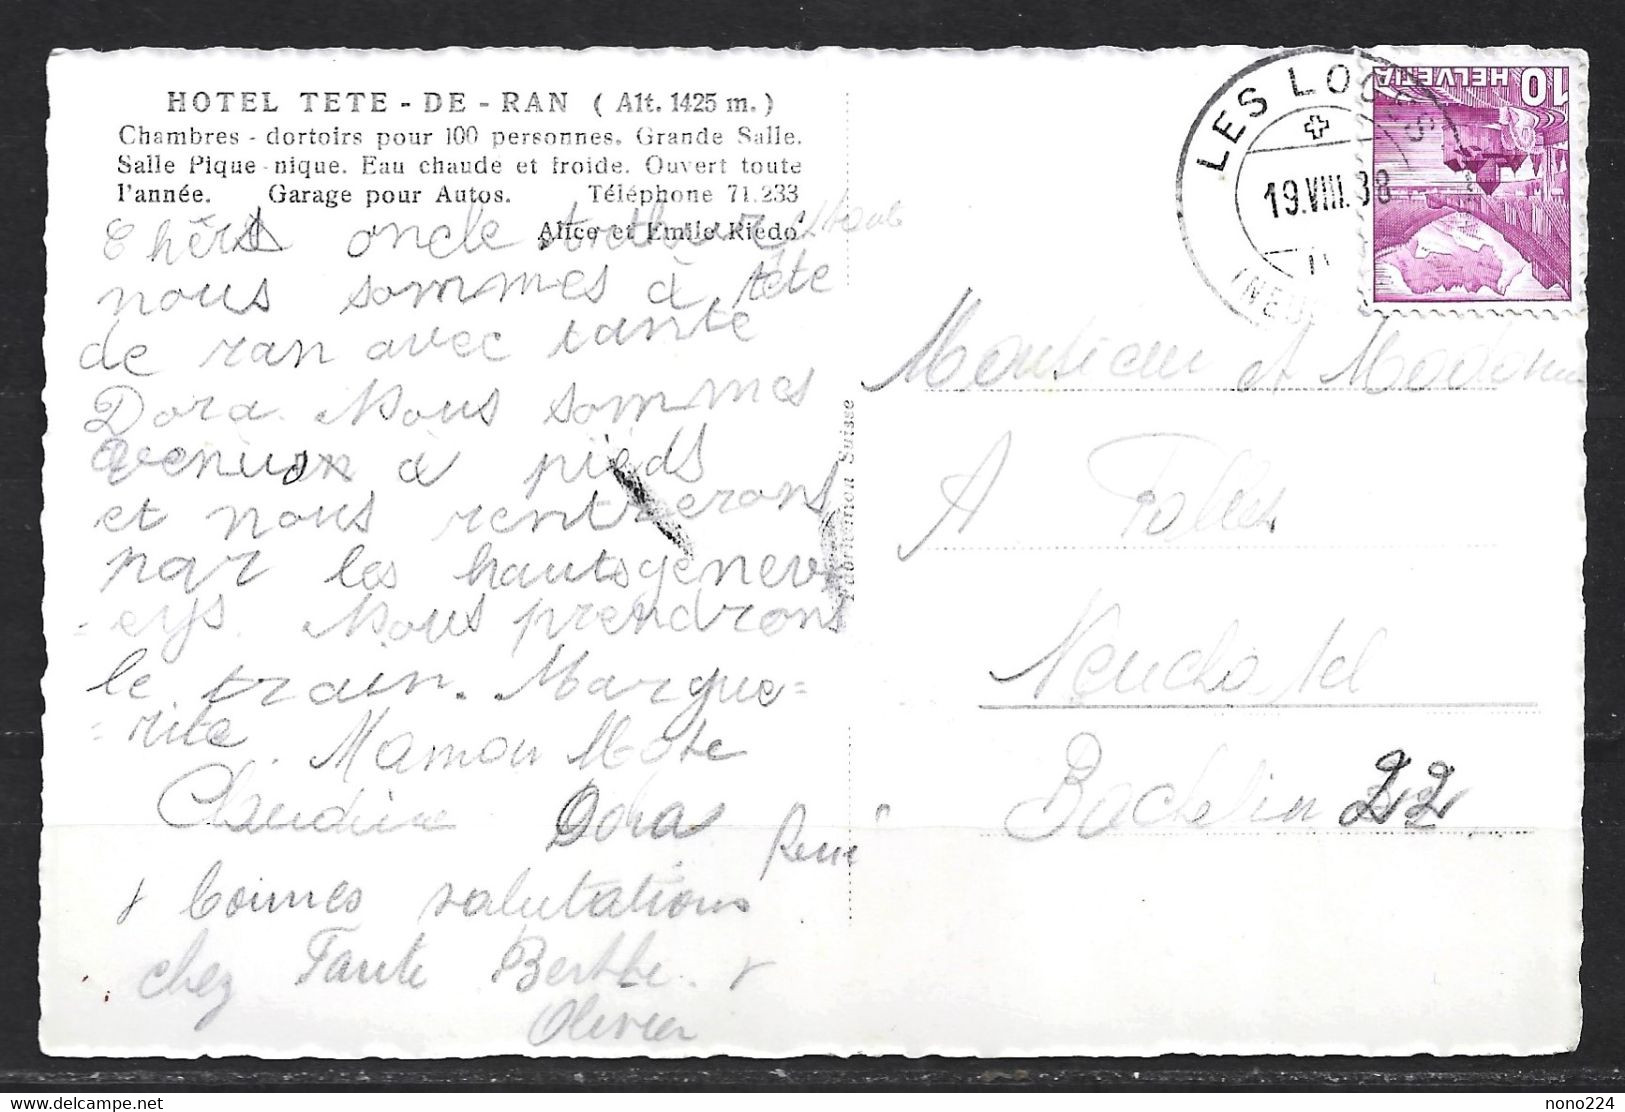 HOTEL TETE - DE - RAN ( Alt. 1425 m. )
Chambres - dortoirs pour 100 personnes. Grande Salle.
Salle Pique-nique. Eau chaude et froide. Ouvert toute
l'année. Garage pour Autos. Téléphone 71.233
Alice et Emile Riedo
Chers oncle
nous sommes à tête
de ran avec tante
Dora. Nous sommes
venus à pieds
et nous rentrerons
par les hautsgenev
- eys. Nous prendrons
le train. Margue=
= rite. Maman
Claudine Dora
René
& bonnes salutations
chez Tante Berthe. &
Olivier
Fabrication Suisse
LES LOGES
19.VIII.38
(NEU
HELVETIA
10
Monsieur et Madame
A
Neuchatel
Bachelin 22
delcampe.net
nono224